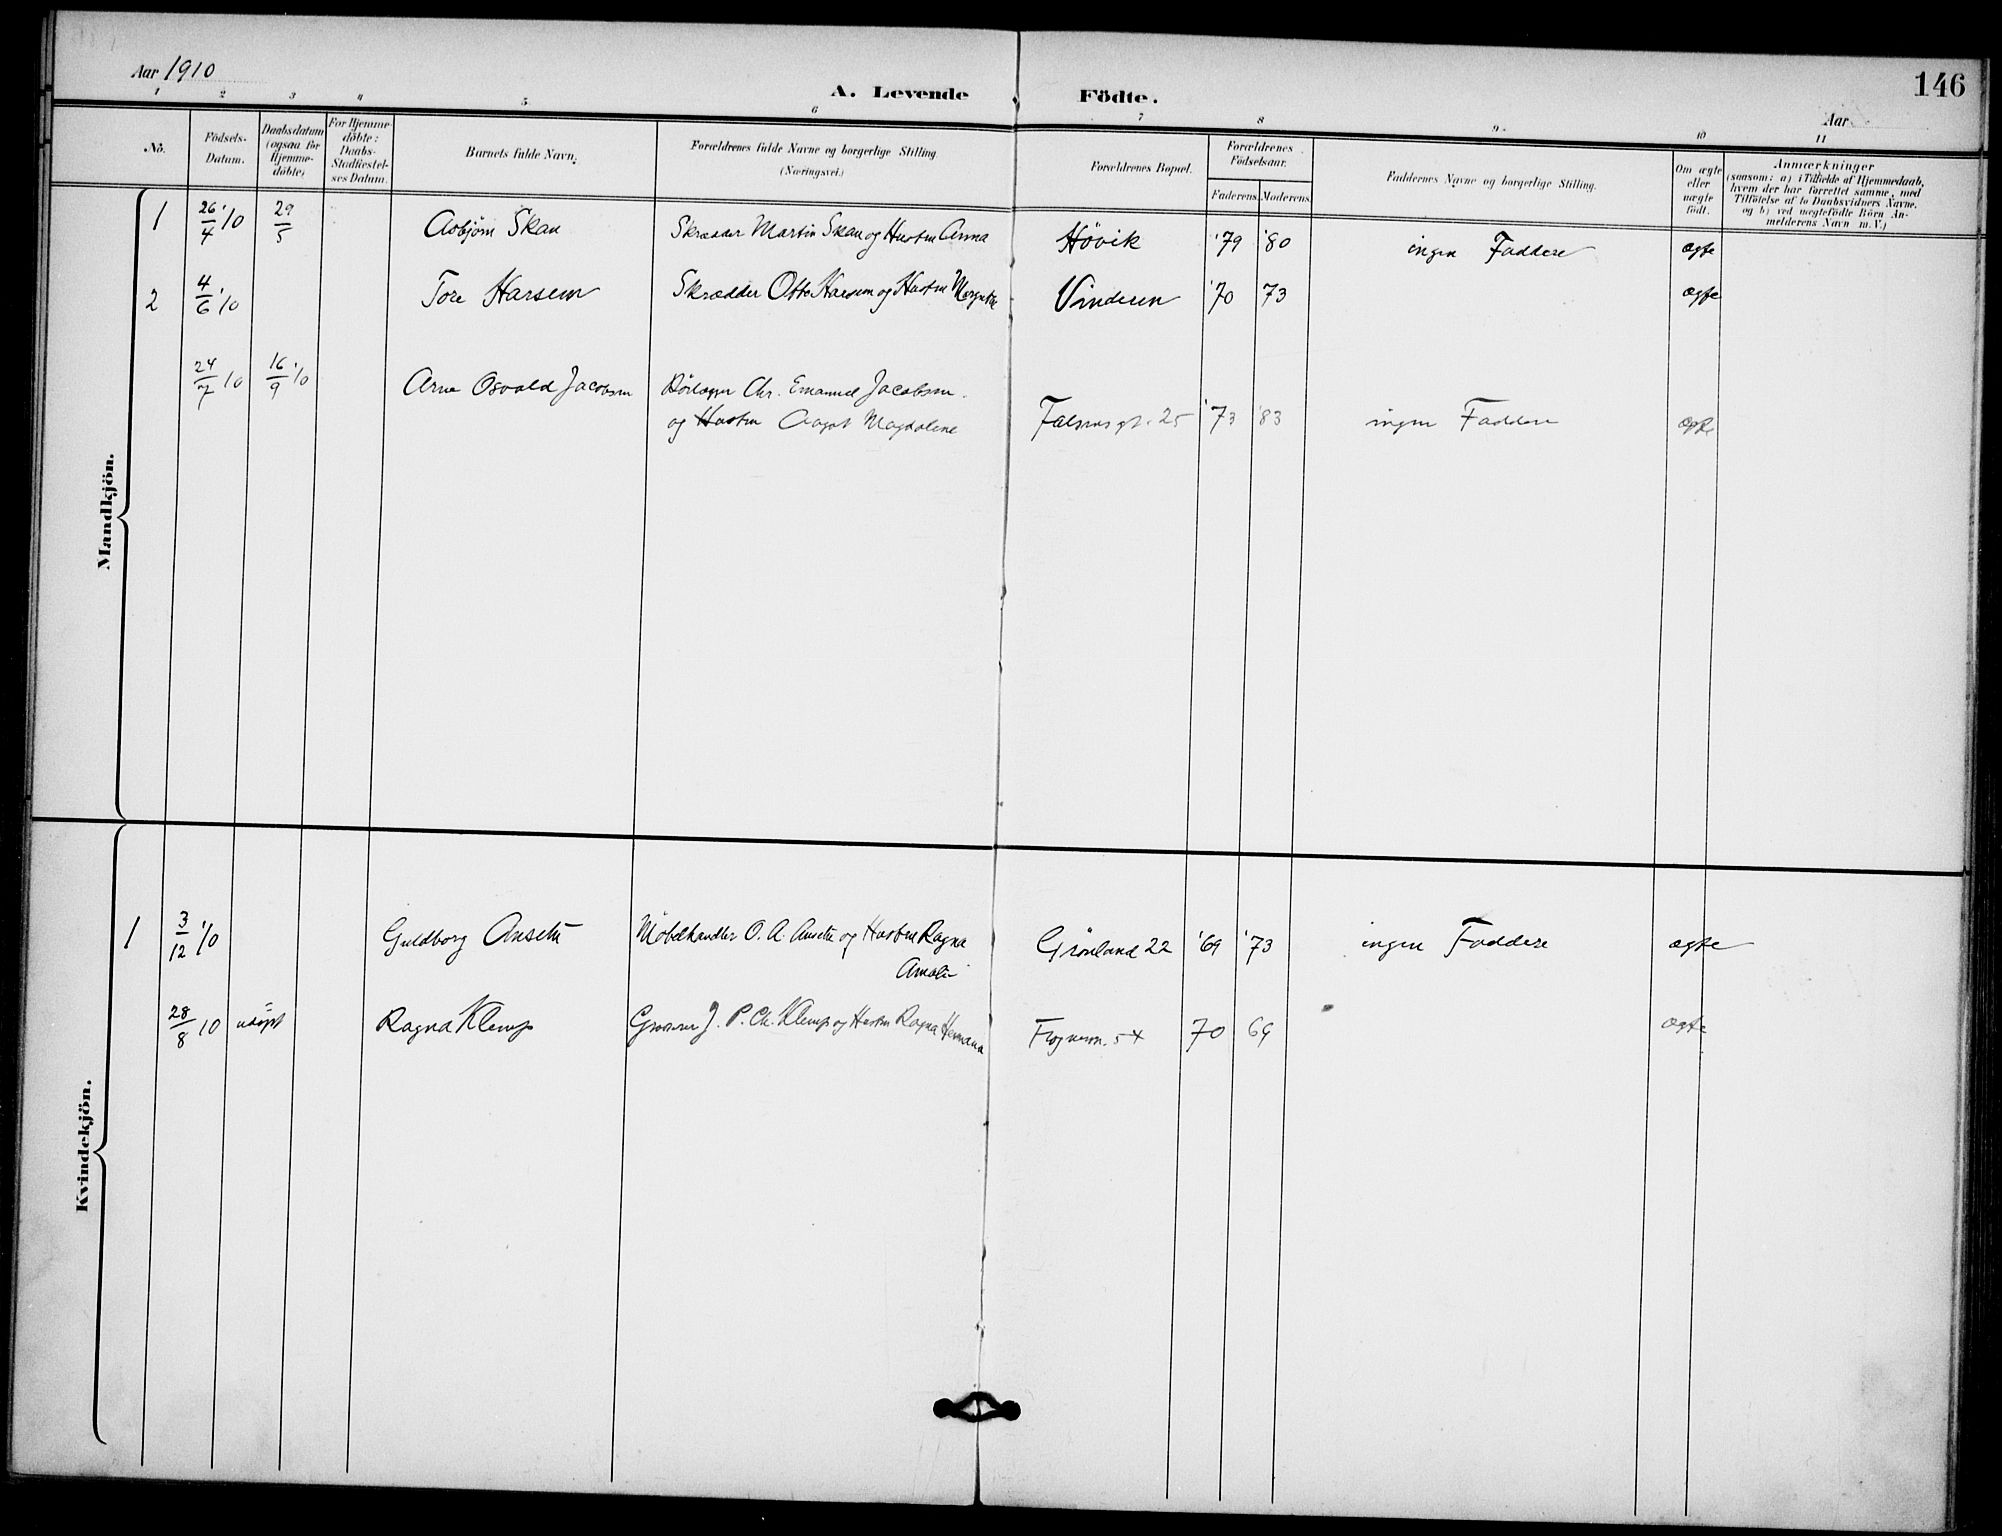 Aar 1910
146
A. Levende Födte.
Aar
1 2 3 4 5 6 7 8 9 10 11
No.
Födsels-
Datum.
Daabsdatum
(ogsaa for
Hjemme-
döbte)
For Hjemme-
döbte:
Daabs-
Stadfæstel-
ses Datum.
Barnets fulde Navn.
Forældrenes fulde Navne og borgerlige Stilling
(Næringsvei.)
Forældrenes Bopæl.
Forældrenes
Födselsaar.
Faderens. Moderens.
Faddernes Navne og borgerlige Stilling.
Om ægte
eller
uægte
födt.
Anmærkninger
(saasom: a) i Tilfælde af Hjemmedaab,
hvem der har forrettet samme, med
Tilföielse af to Daabsvidners Navne,
og b) ved uægtefödte Börn An-
melderens Navn m.V.)
Mandkjön.
1 26/4 '10 29/5 Asbjørn Skau Skrædder Martin Skau og Hustru Anna Høvik '79 '80 ingen Faddere ægte
2 4/6 '10 Tore Harsem Skrædder Otto Harsem og Hustru Margrethe Vinderen '70 '73 ægte
24/7 '10 16/9 '10 Arne Osvald Jacobsen Rørlægger Chr. Emanuel Jacobsen
og Hustru Aagot Magdalene Falsens gt. 25 '73 '83 ingen Faddere ægte
Kvindekjön.
1 3/12 '10 Guldborg Ansethe Møbelhandler O. A. Ansethe og Hustru Ragna
Amalie Grønland 22 '69 '73 ingen Faddere ægte
28/8 10 udøpt Ragna Klemp Grosserer J. P. Ch. Klemp og Hustru Ragna Hermana 70 69 ægte